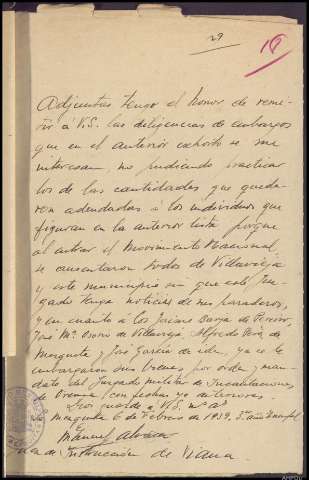 29
18
Adjuntas tengo el honor de remi-
tir á V.S. las diligencias de embargos
que en el anterior exhorto se me
interesan, no pudiendo practicar
los de las cantidades que queda-
ron adeudadas á los individuos que
figuran en la anterior lista porque
al entrar el Movimiento Nacional
se ausentaron todos de Villavieja
y este municipio sin que este Juz-
gado tenga noticias de sus paraderos,
y en cuanto á los Jaime Barja de Pereiro,
José Mª Osorio de Villavieja, Alfredo de
Mezquita y José García de idem, ya se le
embargaron sus bienes por orden y man-
dato del Juzgado Militar de Incautaciones
de Orense con fechas anteriores.
Dios guarde á V.S. ms as
Mezquita 6 de Febrero de 1939. 3er año Triunfal
Manuel Alvarez
de Instrucción de Viana.